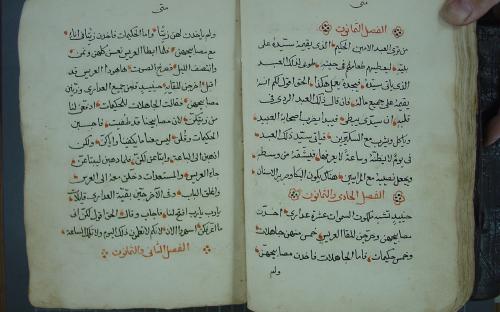 متى
الفصل الثمانون
من ترى العبد الامين الحكيم الذى يقيمه سيده على
بيته ليعطيهم طعامهم فى حينه طوبى لذلك العبد
الذى ياتى سيده فيجده يفعل هكذا الحق اقول لكم انه
يقيمه على جميع ماله فان قال ذلك العبد الردى فى
قلبه ان سيدى يبطى فيبدا يضرب اصحابه العبيد
وياكل ويشرب مع السكيرين فياتى سيد ذلك العبد
فى يوم لا يظنه وساعة لا يعرفها فيشقه من وسطه
ويجعل نصيبه مع المرايين هناك يكون البكا وصرير الاسنان
الفصل الحادى والثمانون
حينيذ تشبه ملكوت السموات عشرة عذارى اخذن
مصابيحهن وخرجن للقا العريس خمس منهن جاهلات
وخمس حكيمات فاما الجاهلات فاخذن مصابيحهن
ولم
متى
ولم ياخذن لهن زيتا واما الحكيمات فاخذن زيتا فى
مع مصابيحهن فلما ابطا العريس نعسن كلهن ونمن
وانتصف الليل فصرخ الصوت هاهوذا العريس قد
اقبل اخرجن للقايه حينيذ قمن جميع العذارى وزين
مصابيحهن فقالت الجاهلات للحكيمات ادفعن لنا
من زيتكن لان مصابيحنا قد طفيت فاجبن
الحكيمات وقلن ليس معنا ما يكفينا واياكن ولكن
اذهبن الى الباعة وابتاعن لكن فلما ذهبن ليبتاعن
جاء العريس والمستعدات دخلن معه الى العرس
واغلق الباب وفى الاخر جين بقية العذارى قايلات
يارب يارب افتح لنا فاجاب وقال الحق اقول لكن
ما اعرفكن اسهروا الان لانكم لا تعلمون ذلك اليوم ولا تلك الساعة
الفصل الثانى والثمانون